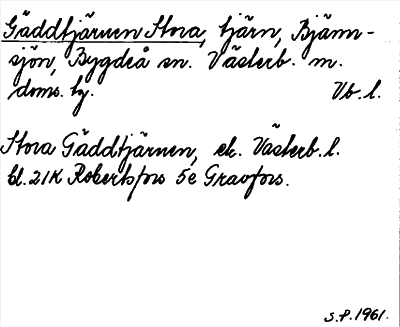 Gäddtjärnen Stora, tjärn, Bjänn-
sjön, Bygdeå sn. Västerb. m.
doms. bg. Vb. l.
Stora Gäddtjärnen, ek. Västerb. l.
bl. 21K Robertsfors 5e Gravfors.
S.P. 1961.